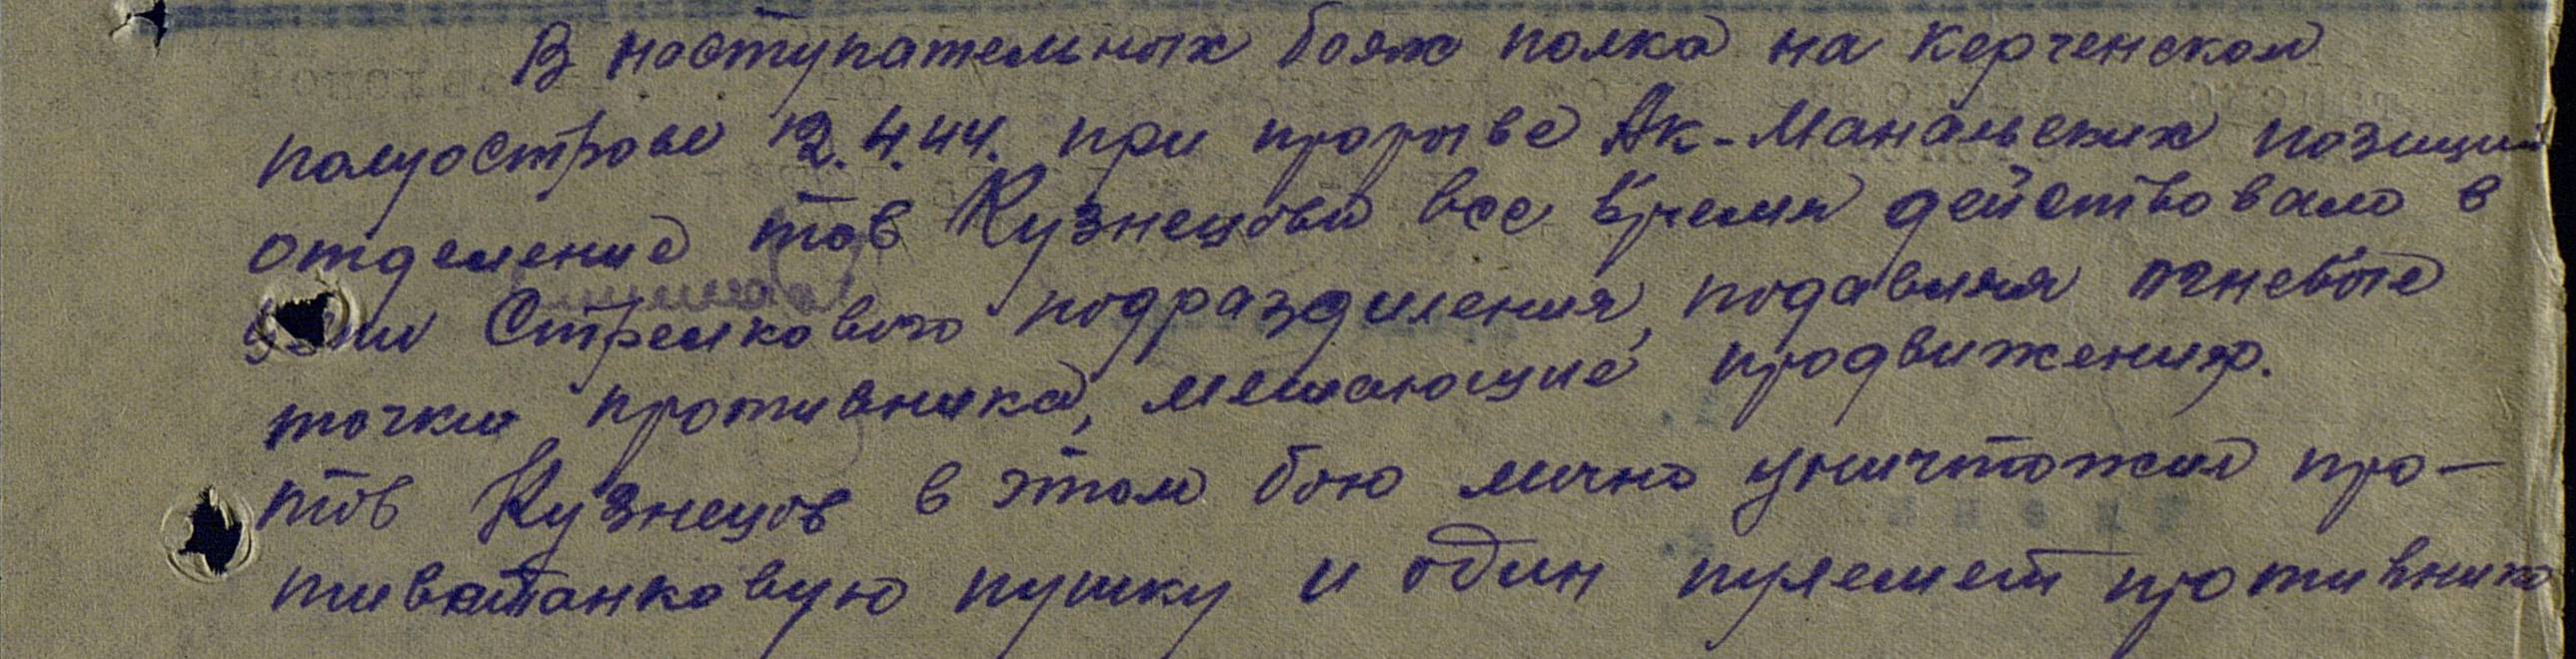 В наступательных боях полка на Керченском
полуострове 12.4.44. при прорыве Ак-Манайских позиций
отделение тов Кузнецова все время действовало в
Стрелкового подразделения, подавляя огневые
точки противника, мешающие продвижения.
тов Кузнецов в этом бою лично уничтожил про-
тивотанковую пушку и один пулемет противника